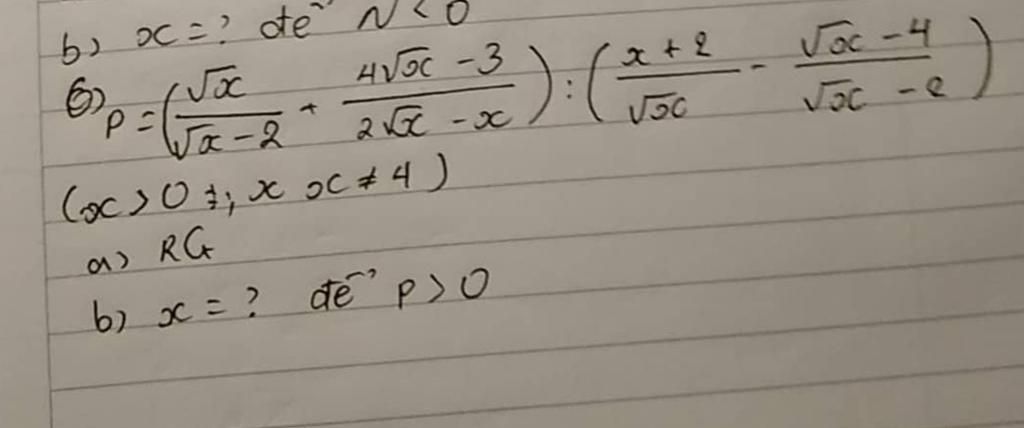 b) x = ? để N < 0
6) P = (√x/(√x - 2) + (4√x - 3)/(2√x - x)) : ((x + 2)/√x - (√x - 4)/(√x - 2))
(x > 0 ; x x ≠ 4)
a) RG
b) x = ? để P > 0